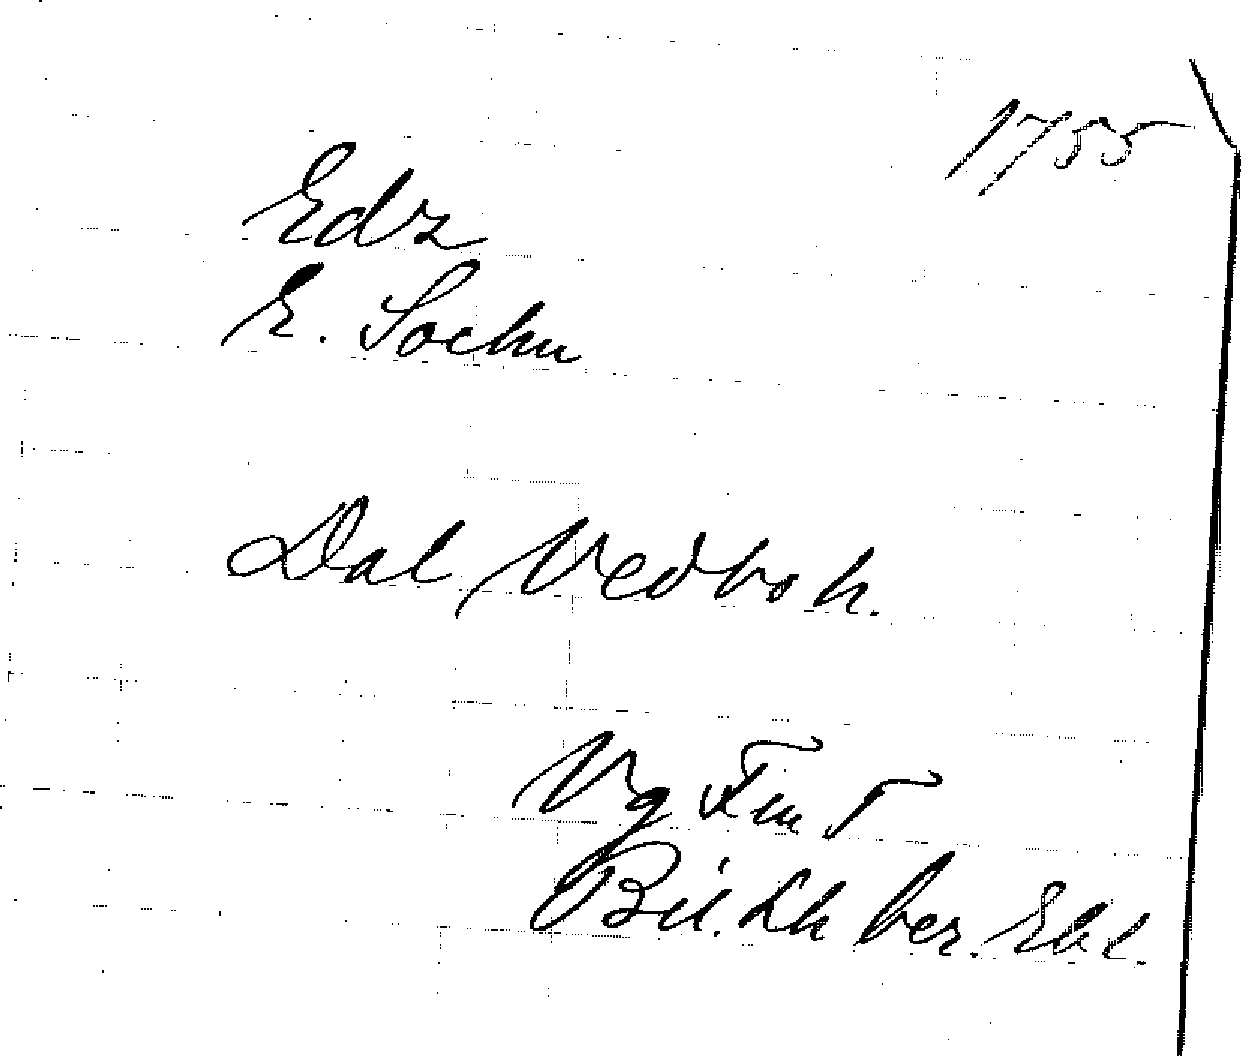 1755
Edz
E. Sochn
Dal Vedboh.
Vg Fin T
Bil. Lh ber. Ebl.